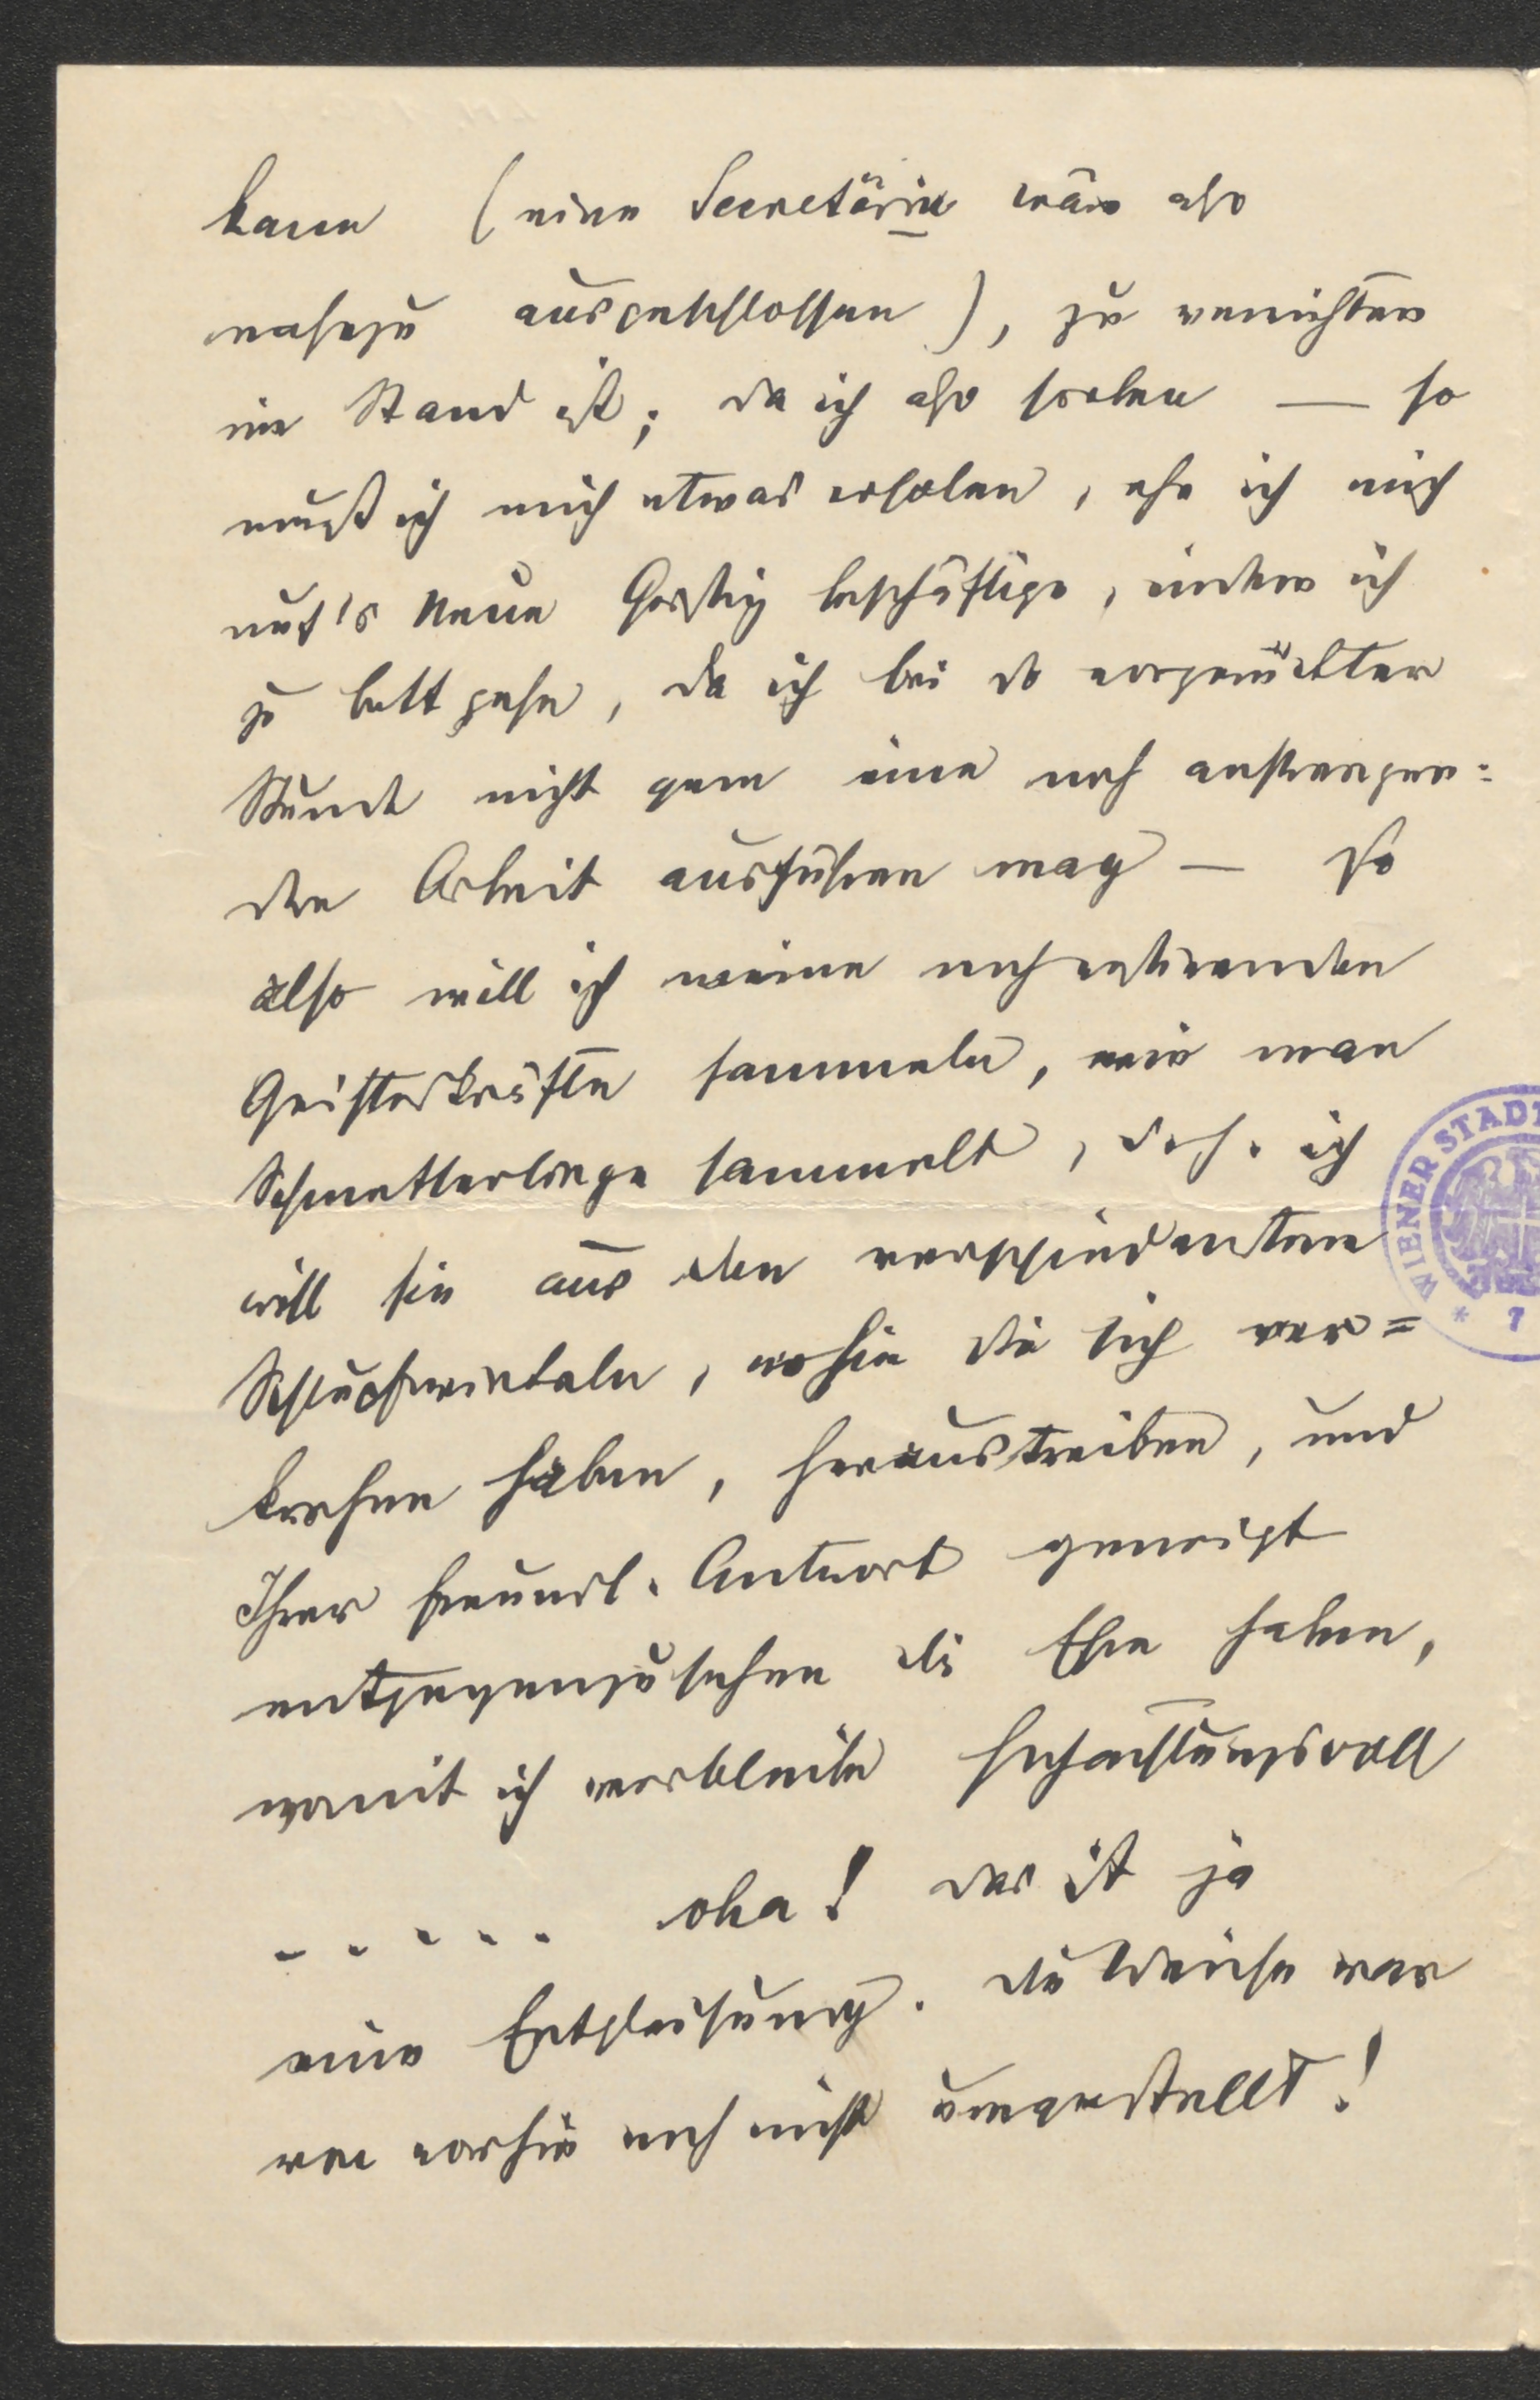 kann (eine Secretärin wäre also
nahezu ausgeschlossen), zu verrichten
im Stand ist; da ich also soeben — so
muß ich mich etwas erholen, ehe ich mich
auf's Neue Geistig beschäftige, indem ich
zu bett gehe, da ich bei so vorgerückter
Stunde nicht gern eine noch anstrengen=
dere Arbeit ausführen mag — So
also will ich meine noch restierenden
Geisteskräfte sammeln, wie man
Schmetterlinge sammelt, d. h. ich
will sie aus den verschiedensten
Schlupfwinkeln, wohin sie sich ver=
krochen haben, heraustreiben, und
Ihrer freundl. Antwort geneigt
entgegenzusehen die Ehre haben,
womit ich verbleibe hochachtungsvoll
- . . . . oha! das ist ja
eine Entgleisung. die Weiche war
von vorhin noch nicht umgestellt!
WIENER STAD
* 7